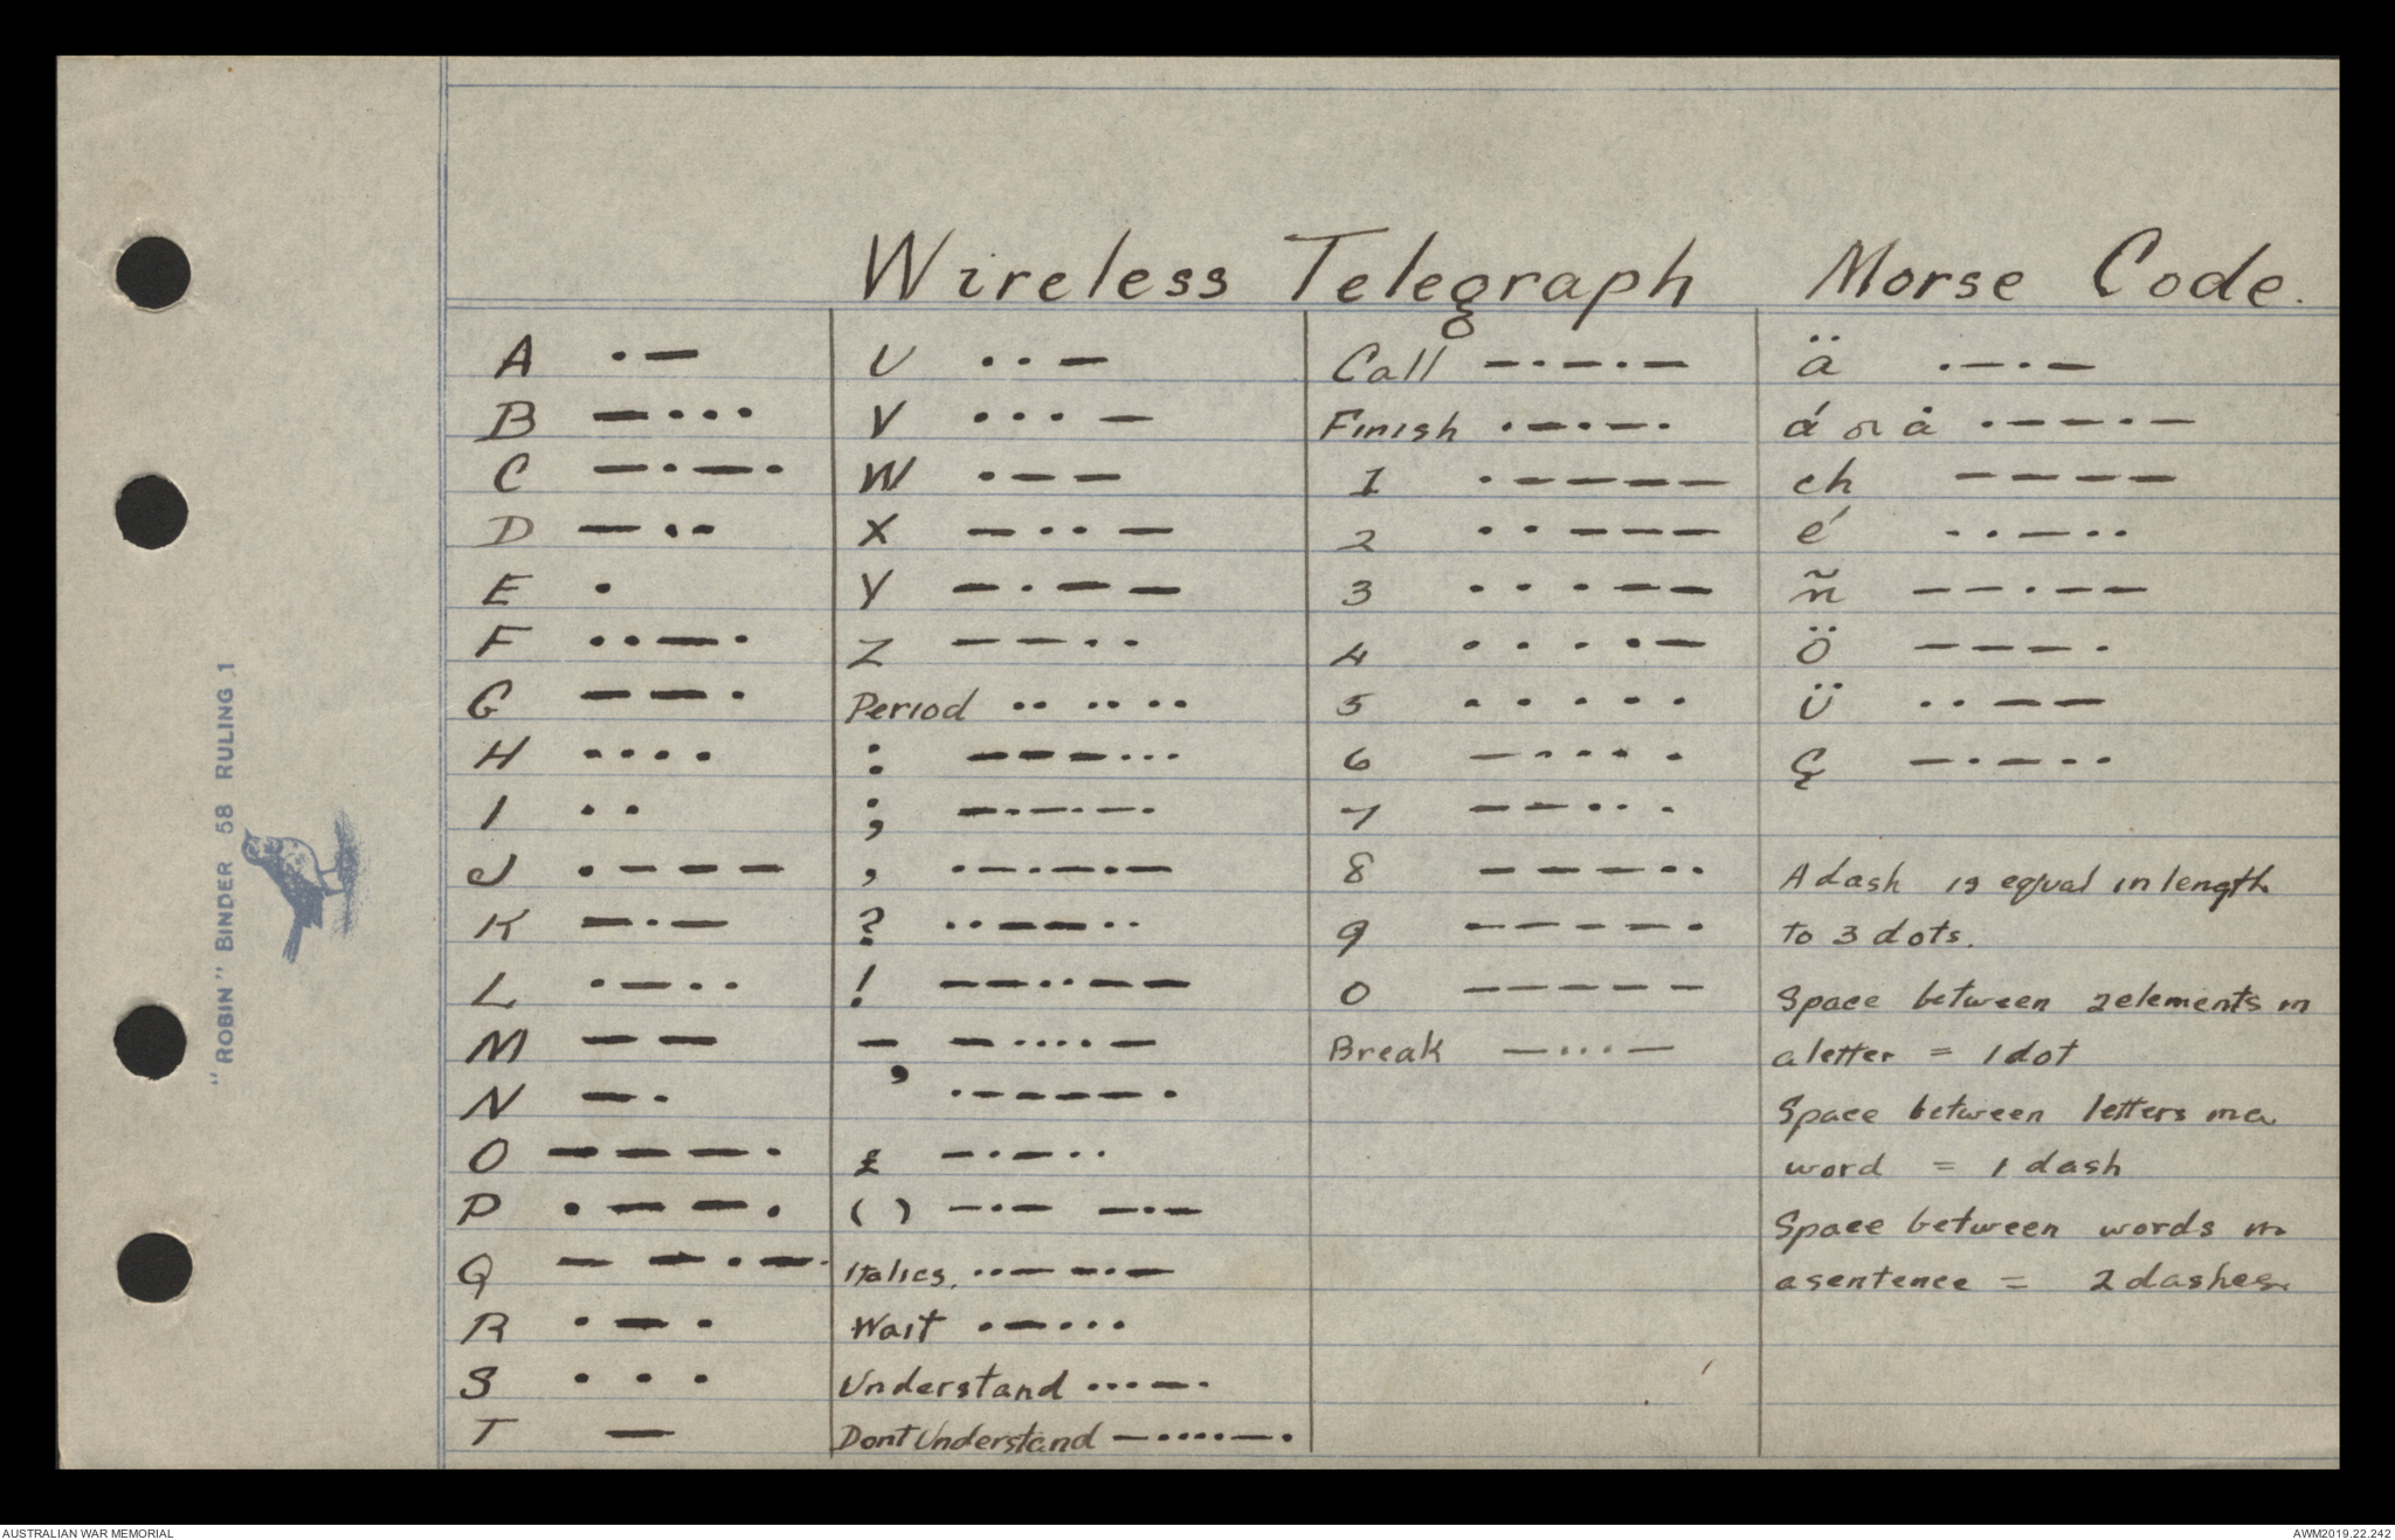 Wireless Telegraph Morse Code.
A · —
B — · · ·
C — · — ·
D — · ·
E ·
F · · — ·
G — — ·
H · · · ·
I · ·
J · — — —
K — · —
L · — · ·
M — —
N — ·
O — — — ·
P · — — ·
Q — — · — ·
R · — ·
S · · ·
T —
U · · —
V · · · —
W · — —
X — · · —
Y — · — —
Z — — · ·
Period ·· ·· ··
: — — — · · ·
; — · — · — ·
, · — · — · —
? · · — — · ·
! — — · · — —
— — · · · · —
’ · — — — — ·
£ — · — · ·
( ) — · — — · —
Italics. · · — — · —
Wait · — · · ·
Understand · · · — ·
Dont Understand — · · · · — ·
Call — · — · —
Finish · — · — ·
1 · — — — —
2 · · — — —
3 · · · — —
4 · · · · —
5 · · · · ·
6 — · · · ·
7 — — · · ·
8 — — — · ·
9 — — — — ·
0 — — — — —
Break — · · · —
ä · — · —
á or å · — — · —
ch — — — —
é · · — · ·
ñ — — · — —
ö — — — ·
Ü · · — —
Ç — · — · ·
A dash is equal in length
to 3 dots.
Space between 2 elements in
a letter = 1 dot
Space between letters in a
word = 1 dash
Space between words in
a sentence = 2 dashes.
"ROBIN" BINDER 58 RULING .1
AUSTRALIAN WAR MEMORIAL
AWM2019.22.242